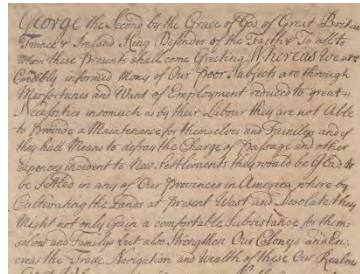 George the Second by the Grace of God of Great Britain
France & Ireland King Defender of the Faith &c To all to
whom these Presents shall come Greeting Whereas we are
Credibly informed Many of Our Poor Subjects are through
Misfortunes and Want of Employment reduced to great
Necessities insomuch as by their Labour they are not Able
to provide a Maintenance for themselves and Familys and if
they had Means to defray the Charge of Passage and other
Expences incident to New Settlements they would be Glad to
be Settled in any of Our Provinces in America where by
Cultivating the Lands at present Wast and Desolate they
Might not only Gain a comfortable Subsistance for them-
selves and Familys but also Strengthen Our Colonys and En-
crease the Trade Navigation and Wealth of these Our Realms